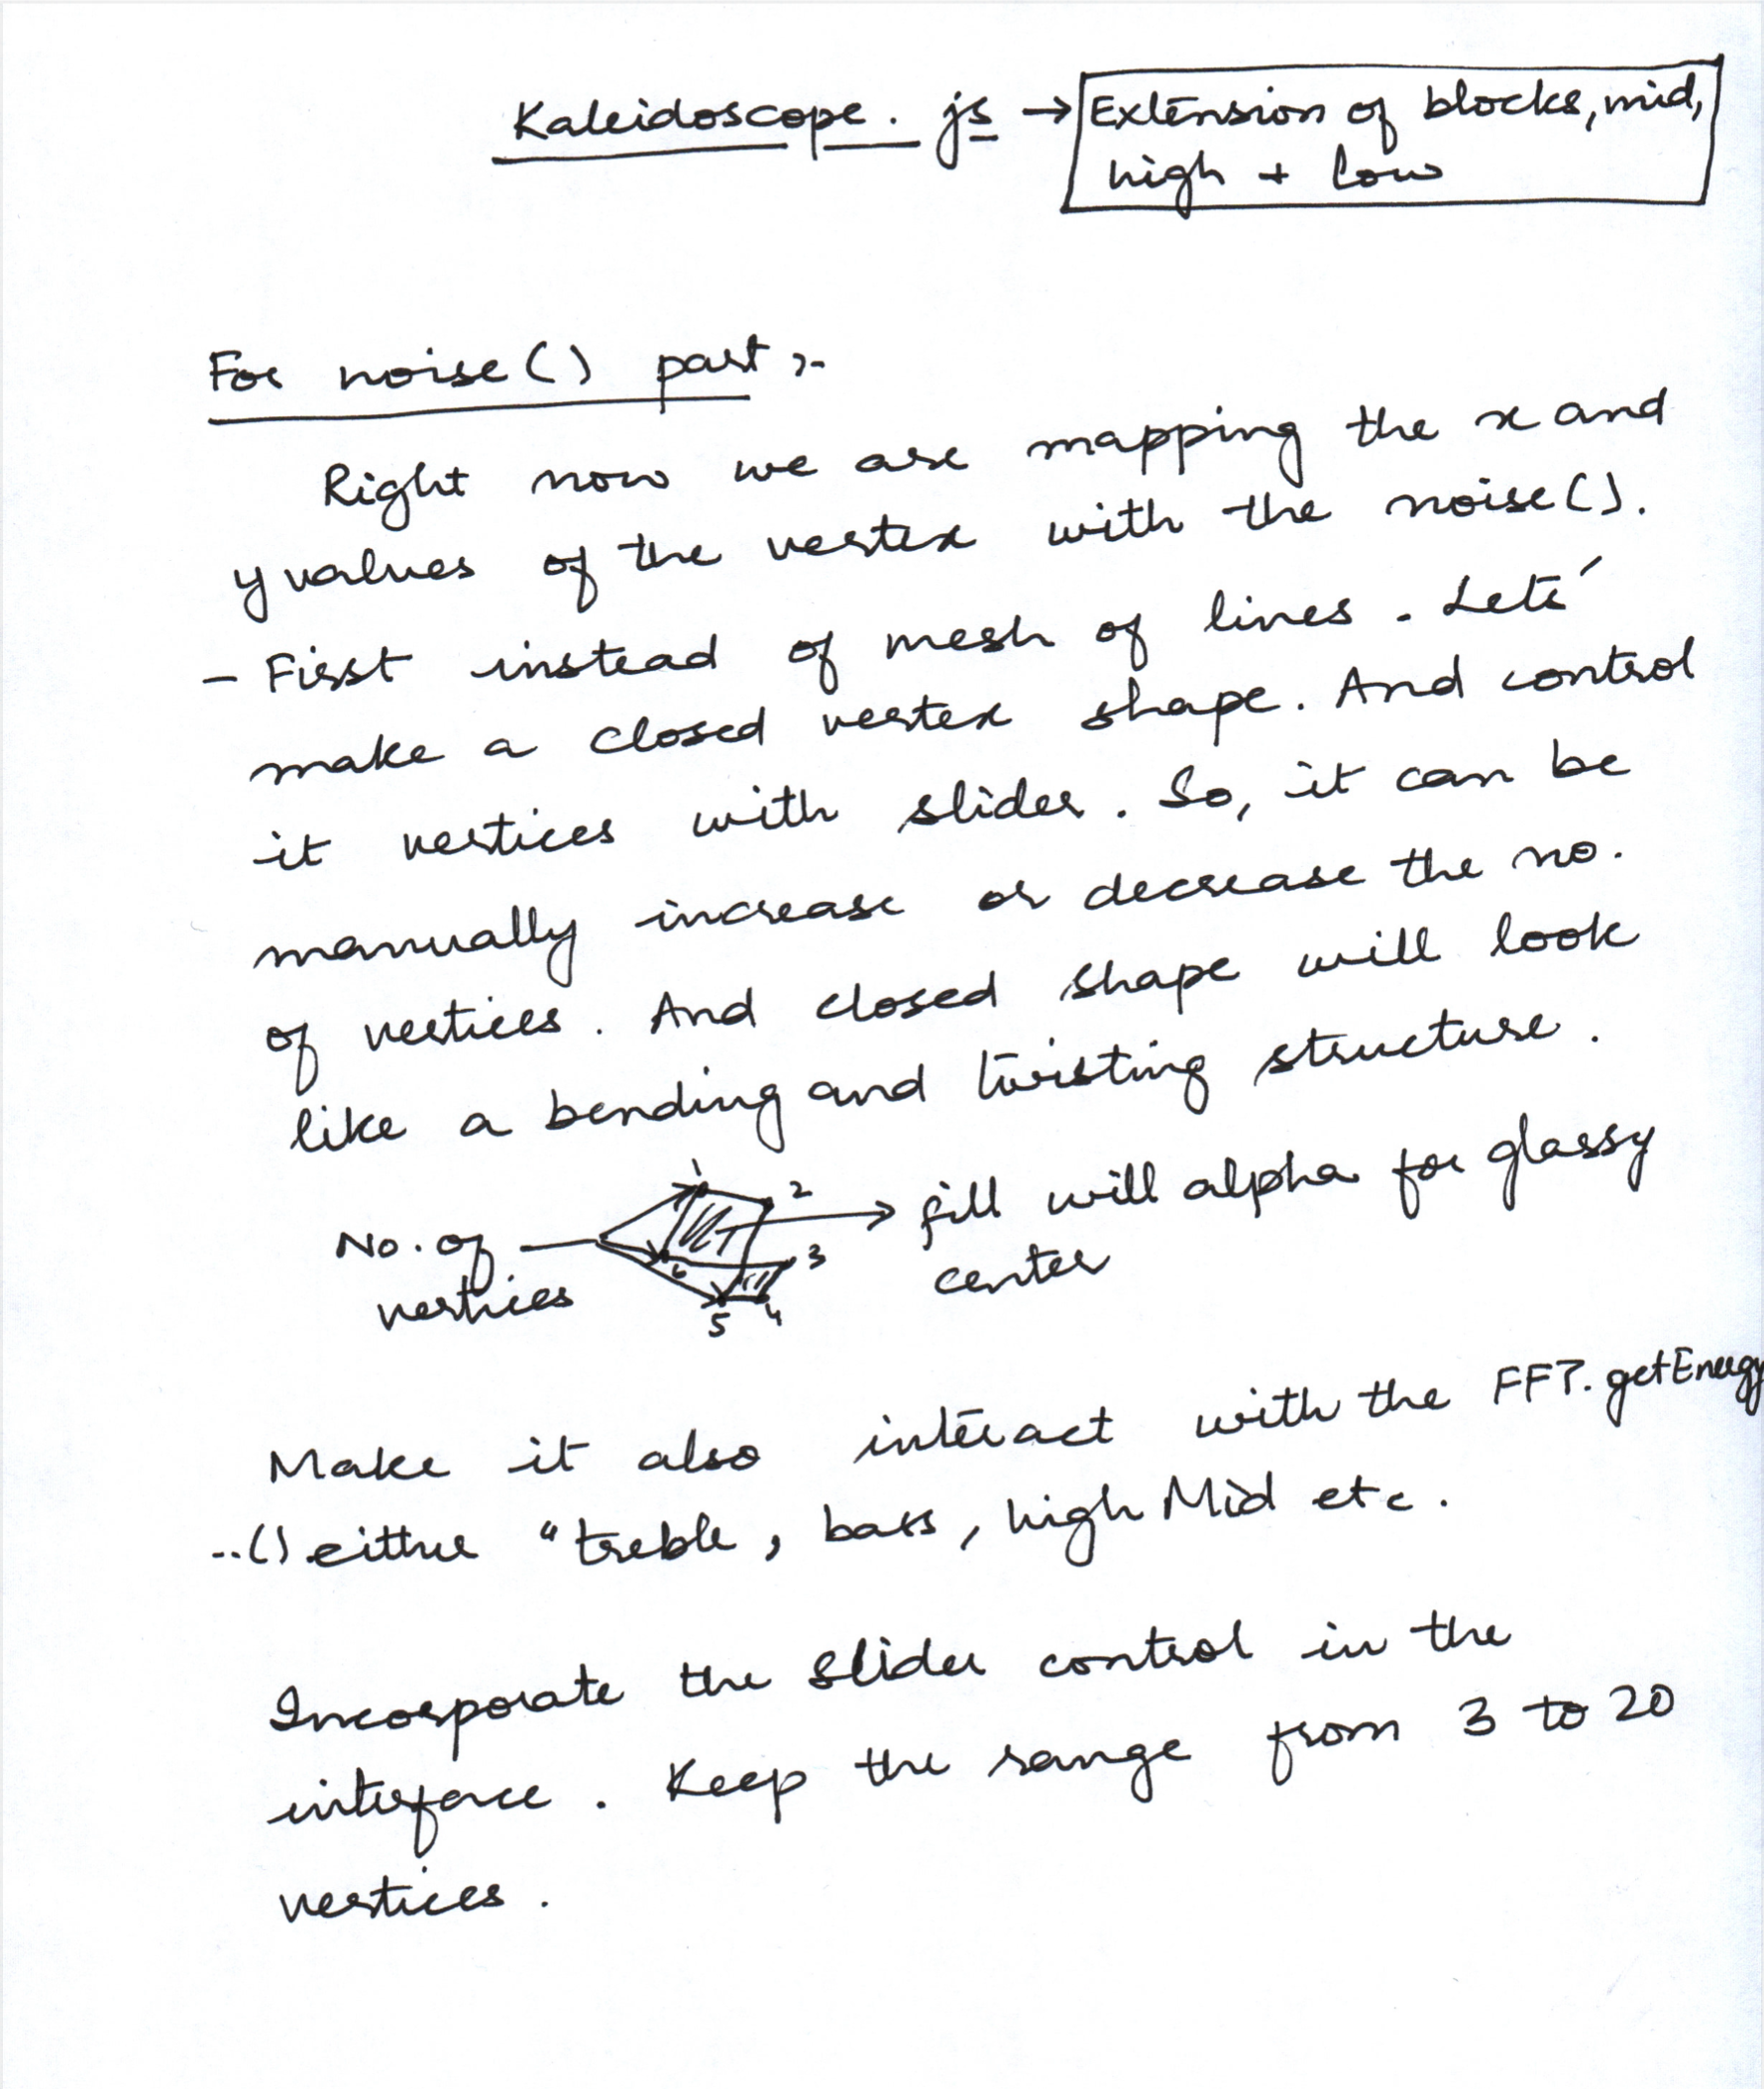 Kaleidoscope. js → Extension of blocks, mid,
high + low
For noise() part :-
Right now we are mapping the x and
y values of the vertex with the noise().
- First instead of mesh of lines. Lets'
make a closed vertex shape. And control
it vertices with slider. So, it can be
manually increase or decrease the no.
of vertices. And closed shape will look
like a bending and twisting structure.
1
2
No. of
vertices
3
4
5
6
fill will alpha for glassy
center
Make it also interact with the FFT.getEnergy
..() either "treble, bass, highMid etc.
Incorporate the slider control in the
interface. Keep the range from 3 to 20
vertices.